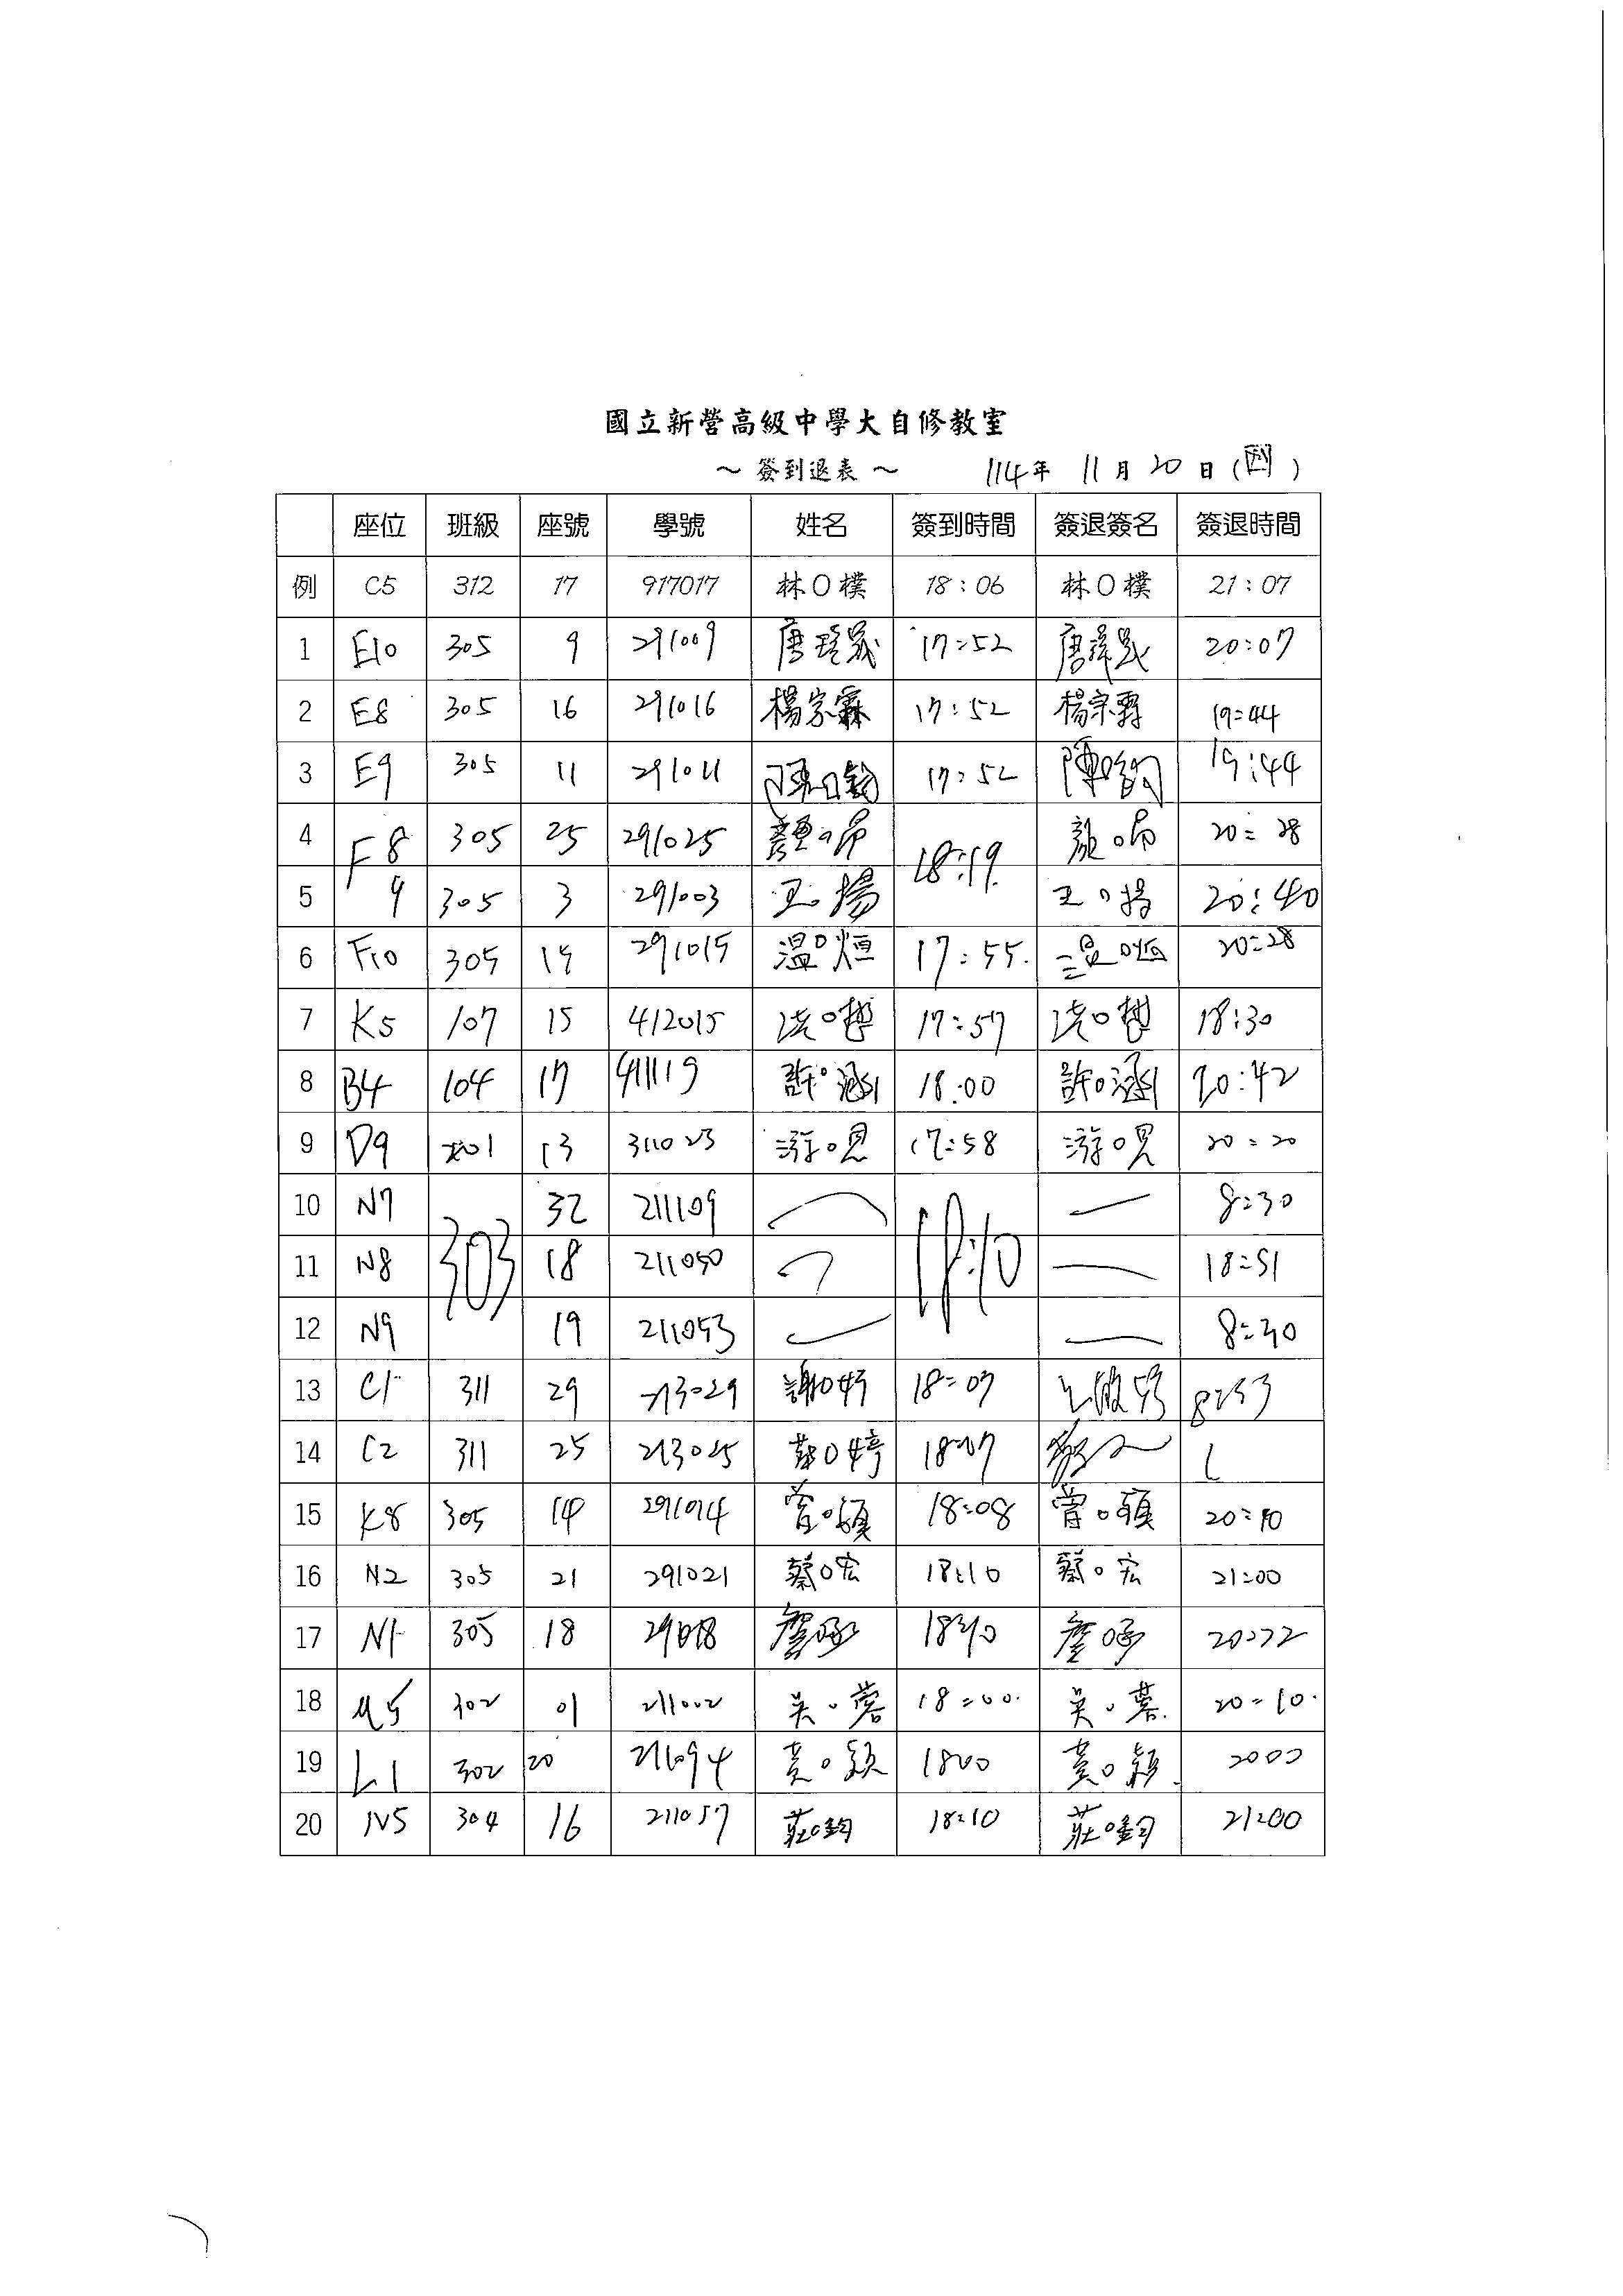 國立新營高級中學大自修教室
～ 簽到退表 ～ 114年 11月 20日(四)
座位 班級 座號 學號 姓名 簽到時間 簽退簽名 簽退時間
例 C5 312 17 917017 林O樸 18:06 林O樸 21:07
1 E10 305 9 291009 唐 17:52 唐 20:07
2 E8 305 16 291016 楊宗霖 17:52 楊宗霖 19:44
3 E9 305 11 291011 陳O鈞 17:52 陳O鈞 19:44
4 F8 305 25 291025 顏O昂 18:19 顏O昂 20:28
5 9 305 3 291003 王O揚 王O揚 20:40
6 F10 305 15 291015 溫O烜 17:55 溫O烜 20:28
7 K5 107 15 412015 洪O哲 17:57 洪O哲 18:30
8 B4 104 17 411119 許O涵 18:00 許O涵 20:42
9 D9 201 13 311023 游O恩 17:58 游O恩 20:20
10 N7 303 32 211109 18:10 8:30
11 N8 18 211050 18:51
12 N9 19 211053 8:30
13 C1 311 29 213029 謝O妤 18:07 8:53
14 C2 311 25 213025 蔡O婷 18:07
15 K8 305 14 291014 曾O碩 18:08 曾O碩 20:10
16 N2 305 21 291021 蔡O宏 18:10 蔡O宏 21:00
17 N1 305 18 291018 詹O承 18:10 詹O承 20:22
18 M5 302 01 211002 吳O蓉 18:00 吳O蓉 20:10
19 L1 302 20 211094 黃O穎 1800 黃O穎 2000
20 N5 304 16 211057 莊O鈞 18:10 莊O鈞 21:00